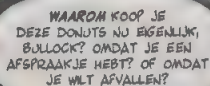 WAAROM KOOP JE
DEZE DONUTS NU EIGENLIJK,
BULLOCK? OMDAT JE EEN
AFSPRAAKJE HEBT? OF OMDAT
JE WILT AFVALLEN?